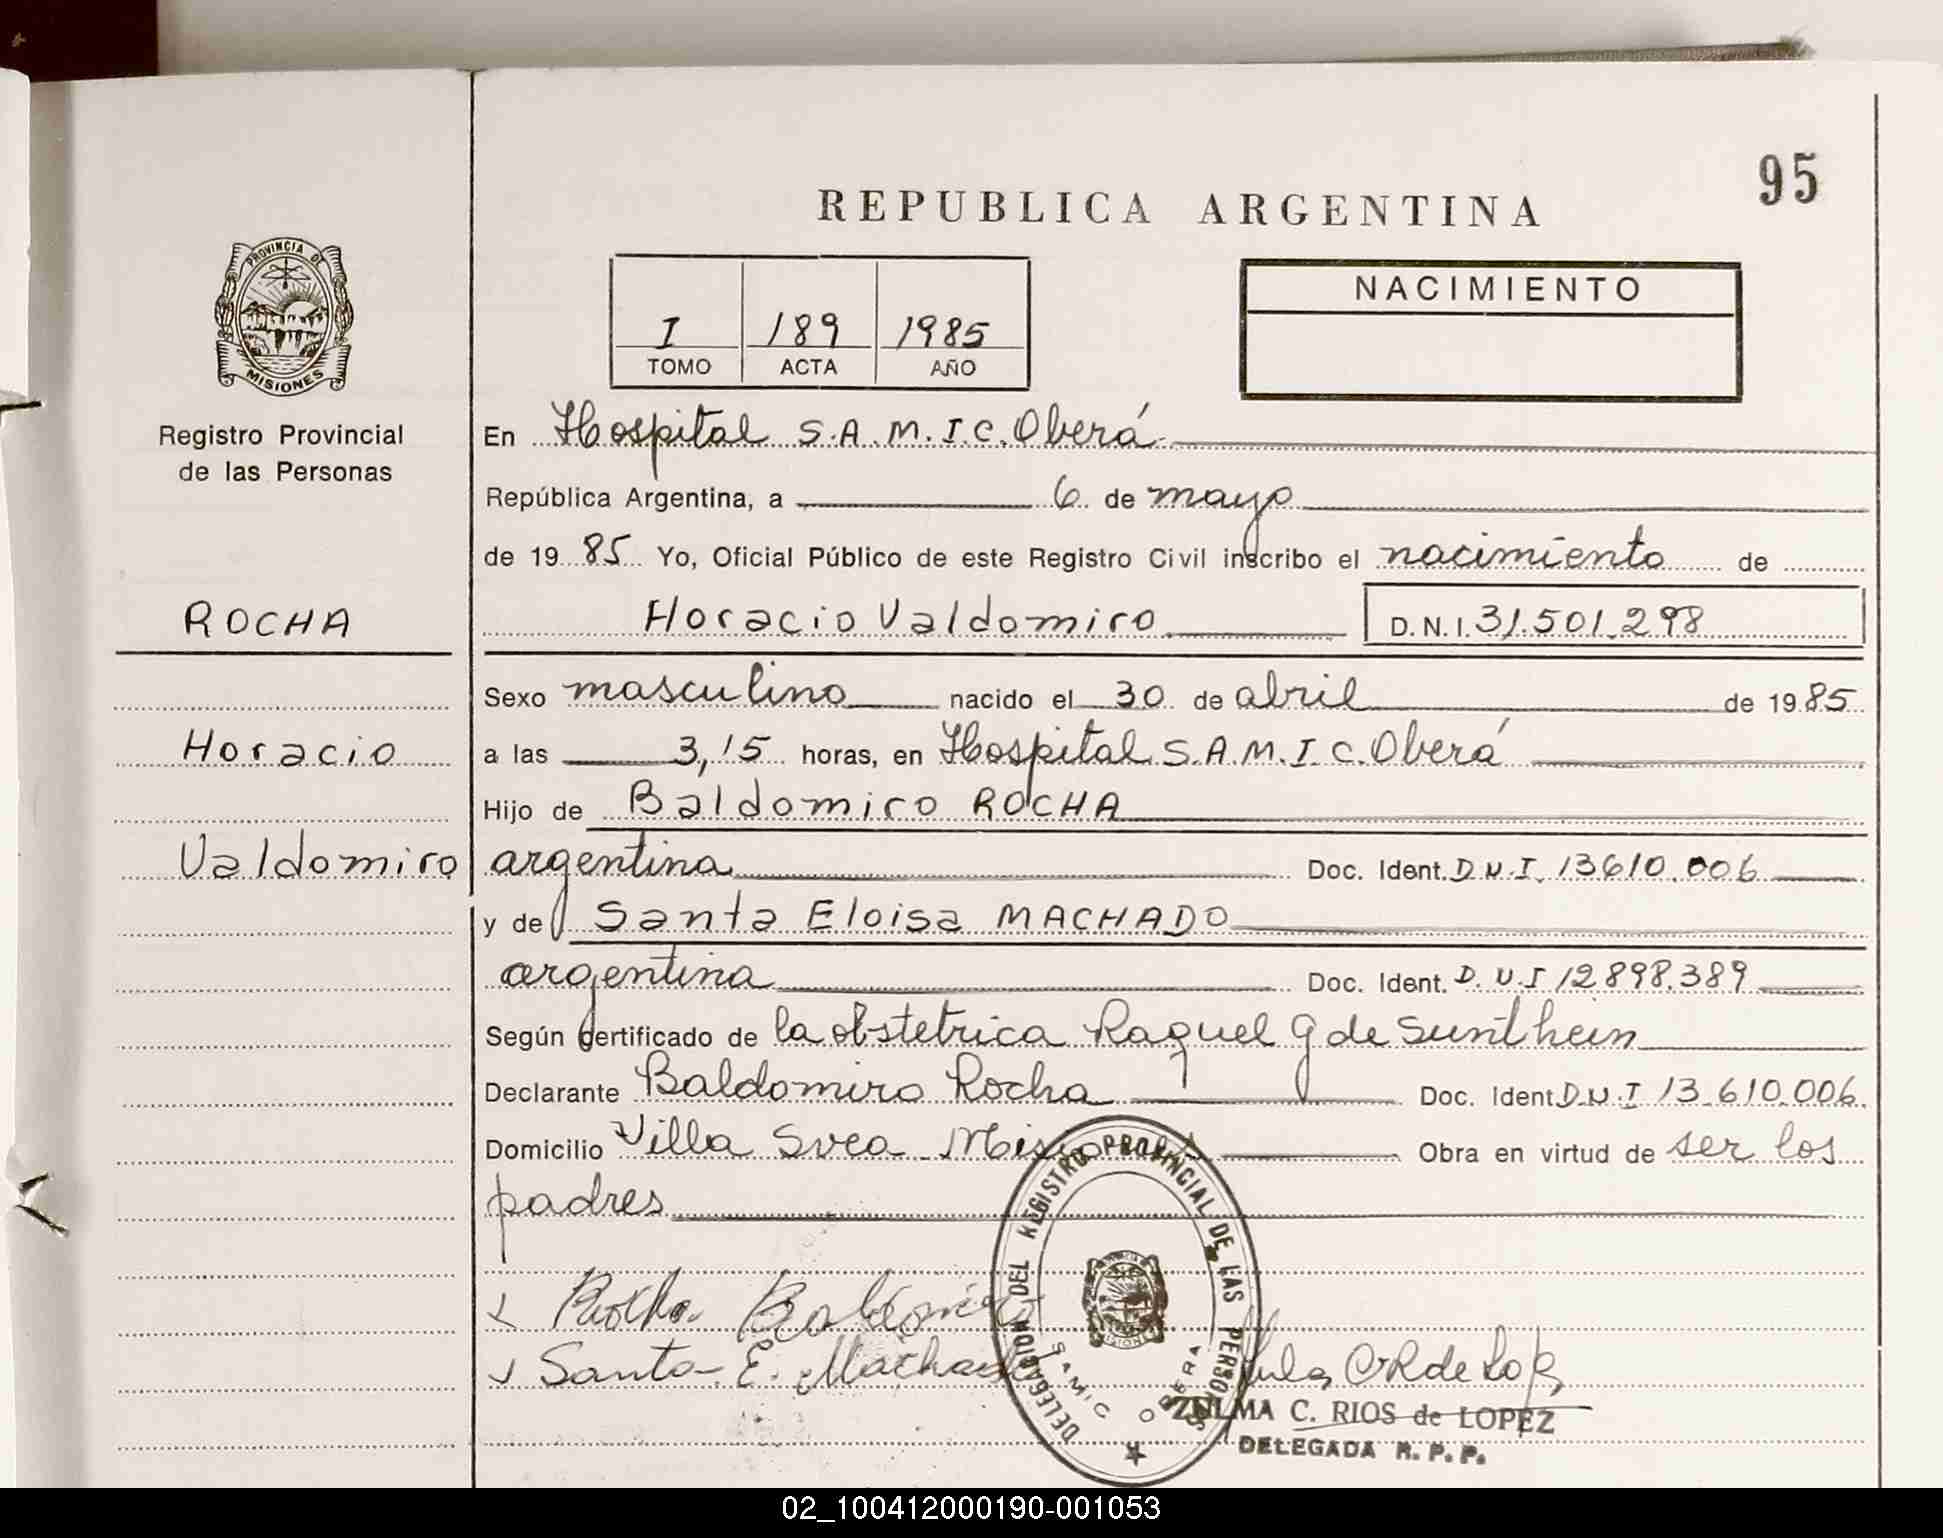 95
REPUBLICA ARGENTINA
PROVINCIA DE
MISIONES
Registro Provincial
de las Personas
I 189 1985
TOMO ACTA AÑO
NACIMIENTO
En Hospital S.A.M.I.C. Oberá
República Argentina, a 6 de mayo
de 19 85 Yo, Oficial Público de este Registro Civil inscribo el nacimiento de
ROCHA
Horacio Valdomiro D.N.I. 31.501.298
Sexo masculino nacido el 30 de abril de 19 85
Horacio
a las 3,15 horas, en Hospital S.A.M.I.C. Oberá
Hijo de Baldomiro ROCHA
Valdomiro
argentina Doc. Ident. D.N.I. 13610.006
y de Santa Eloisa MACHADO
argentina Doc. Ident. D.N.I 12898.389
Según certificado de la obstetrica Raquel G de Sunthein
Declarante Baldomiro Rocha Doc. Ident D.N.I 13.610.006.
Domicilio Villa Svea - Misiones Obra en virtud de ser los
padres
Rocha Baldomiro
Santa E. Machado
DELEGACION DEL REGISTRO PROVINCIAL DE LAS PERSONAS
SAMIC OBERA
ZULMA C. RIOS de LOPEZ
DELEGADA R. P. P.
02_100412000190-001053